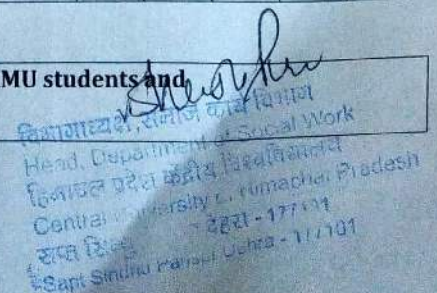 MU students and
विभागाध्यक्ष, समाज कार्य विभाग
Head, Department of Social Work
हिमाचल प्रदेश केंद्रीय विश्वविद्यालय
Central University Himachal Pradesh
सप्त देहरा - 177101
Sapt Sindhu Parisar Dehra - 177101